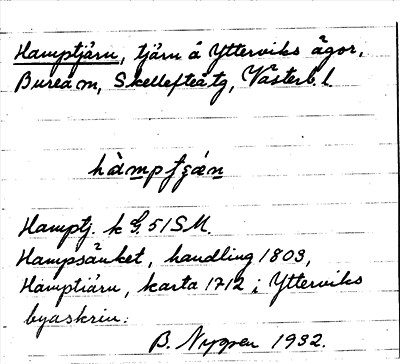 Hamptjärn, tjärn å Ytterviks ägor,
Bureå m, Skellefteå tg, Västerb. l.
hàmpʃǥǽn
Hamptj. k G. 51 SM.
Hampsänket, handling 1803,
Hamptiärn, karta 1712 i Ytterviks
byaskrin.
B. Nygren 1932.